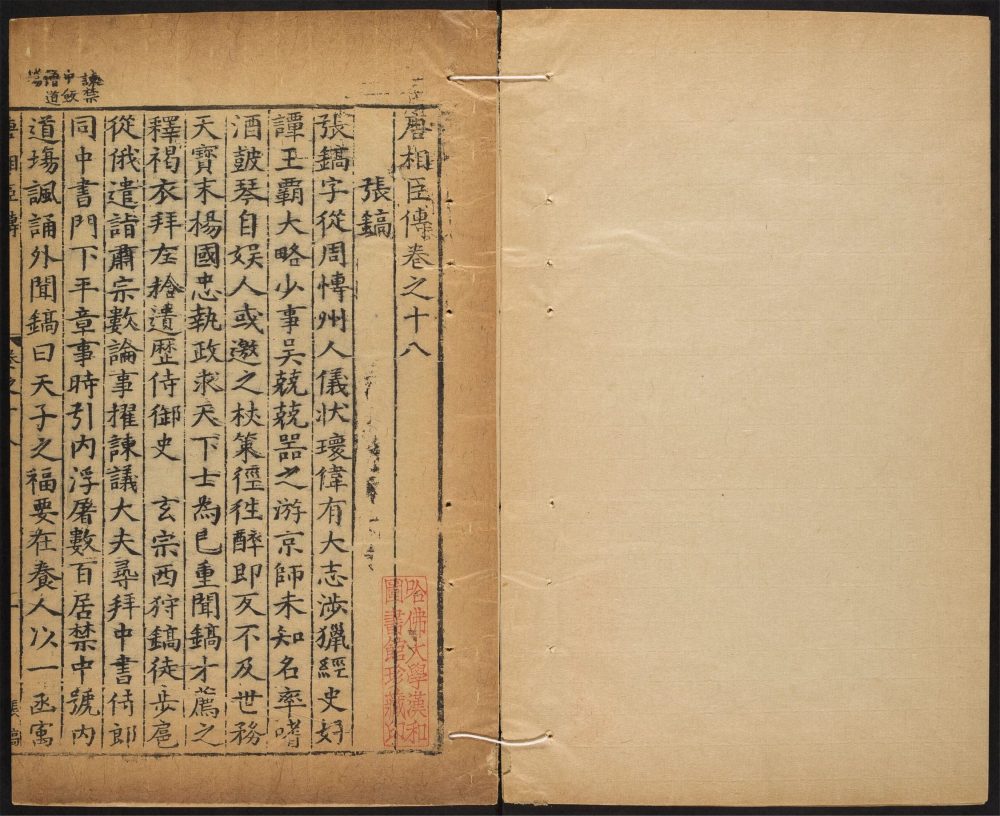 唐相臣傳卷之十八
張鎬
張鎬字從周博州人儀狀瓌偉有大志涉獵經史好
譚王霸大略少事吳兢兢器之游京師未知名率嗜
酒鼓琴自娛人或邀之杖策徑往醉即反不及世務
天寶末楊國忠執政求天下士為已重聞鎬才薦之
釋褐衣拜左拾遺歷侍御史 玄宗西狩鎬徒步扈
從俄遣詣肅宗數論事擢諫議大夫尋拜中書侍郎
同中書門下平章事時引內浮屠數百居禁中號內
道塲諷誦外聞鎬曰天子之福要在養人以一函寓
諫禁
中飯
道
唐相臣傳 卷之十八 張鎬
哈佛大學漢和
圖書館珍藏印